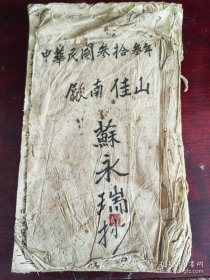 中華民國叁拾叁年
歙南佳山
蘇永瑞抄